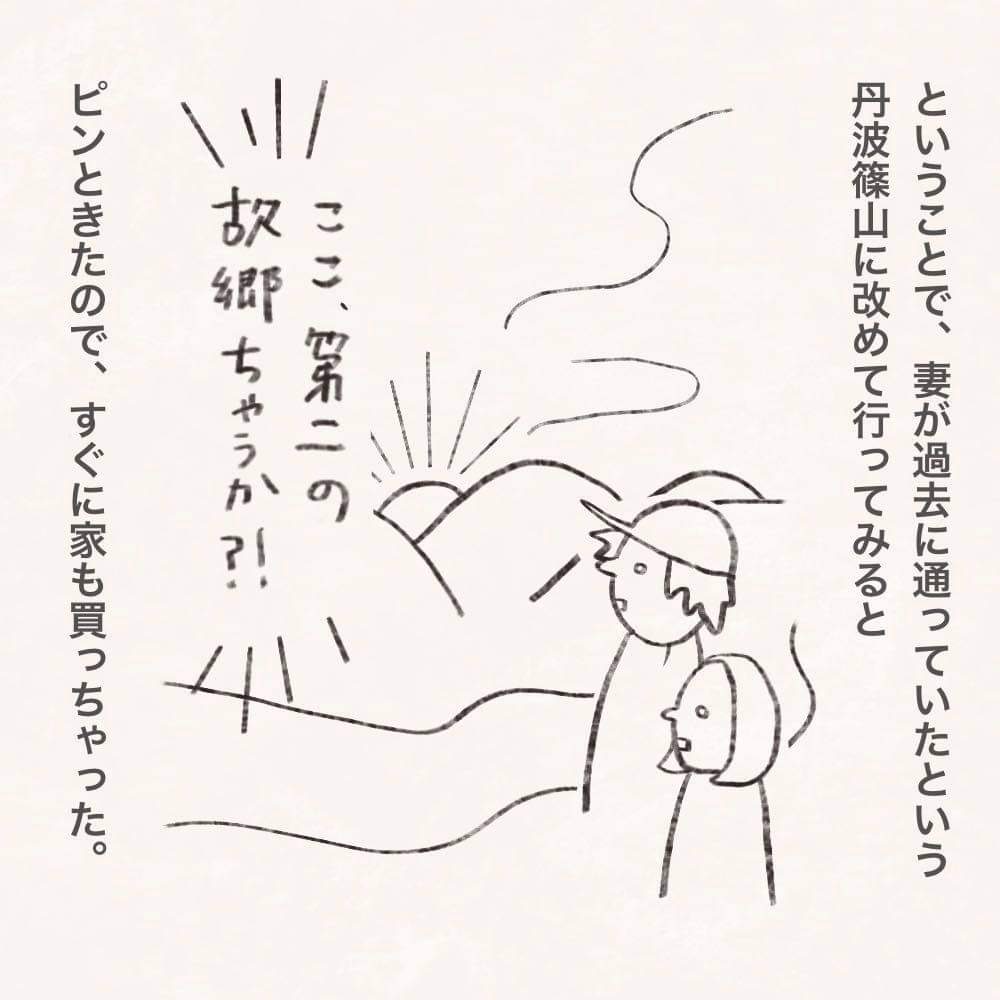 ということで、妻が過去に通っていたという
丹波篠山に改めて行ってみると
ここ、第二の
故郷ちゃうか?!
ピンときたので、すぐに家も買っちゃった。